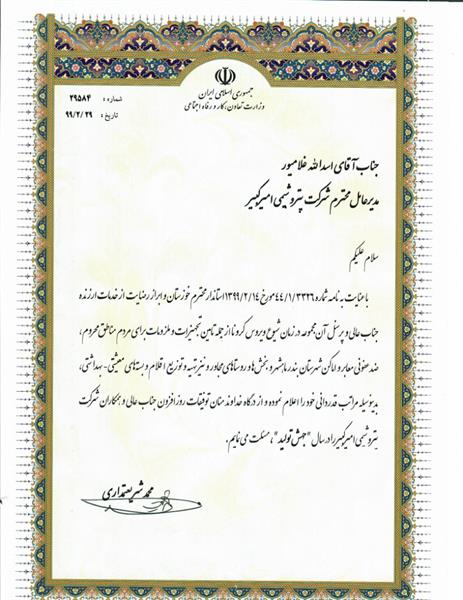 جمهوری اسلامی ایران
وزارت تعاون، کار و رفاه اجتماعی
شماره : ۲۹۵۸۴
تاریخ : ۹۹/۲/۲۹
جناب آقای اسدالله غلامپور
مدیرعامل محترم شرکت پتروشیمی امیرکبیر
سلام علیکم
با عنایت به نامه شماره ۴۴/۱/۳۳۲۶ مورخ ۱۳۹۹/۲/۱۴ استاندار محترم خوزستان و ابراز رضایت از خدمات ارزنده
جناب عالی و پرسنل آن مجموعه در زمان شیوع ویروس کرونا از جمله تامین تجهیزات و ملزومات برای مردم مناطق محروم،
ضد عفونی معابر و اماکن شهرستان بندر ماهشهر و بخش ها و روستاهای مجاور و نیز تهیه و توزیع اقلام و بسته های معیشتی - بهداشتی،
بدینوسیله مراتب قدردانی خود را اعلام نموده و از درگاه خداوند منان توفیقات روز افزون جناب عالی و همکاران شرکت
پتروشیمی امیرکبیر را در سال "جهش تولید"، مسئلت می نمایم.
محمد شریعتمداری